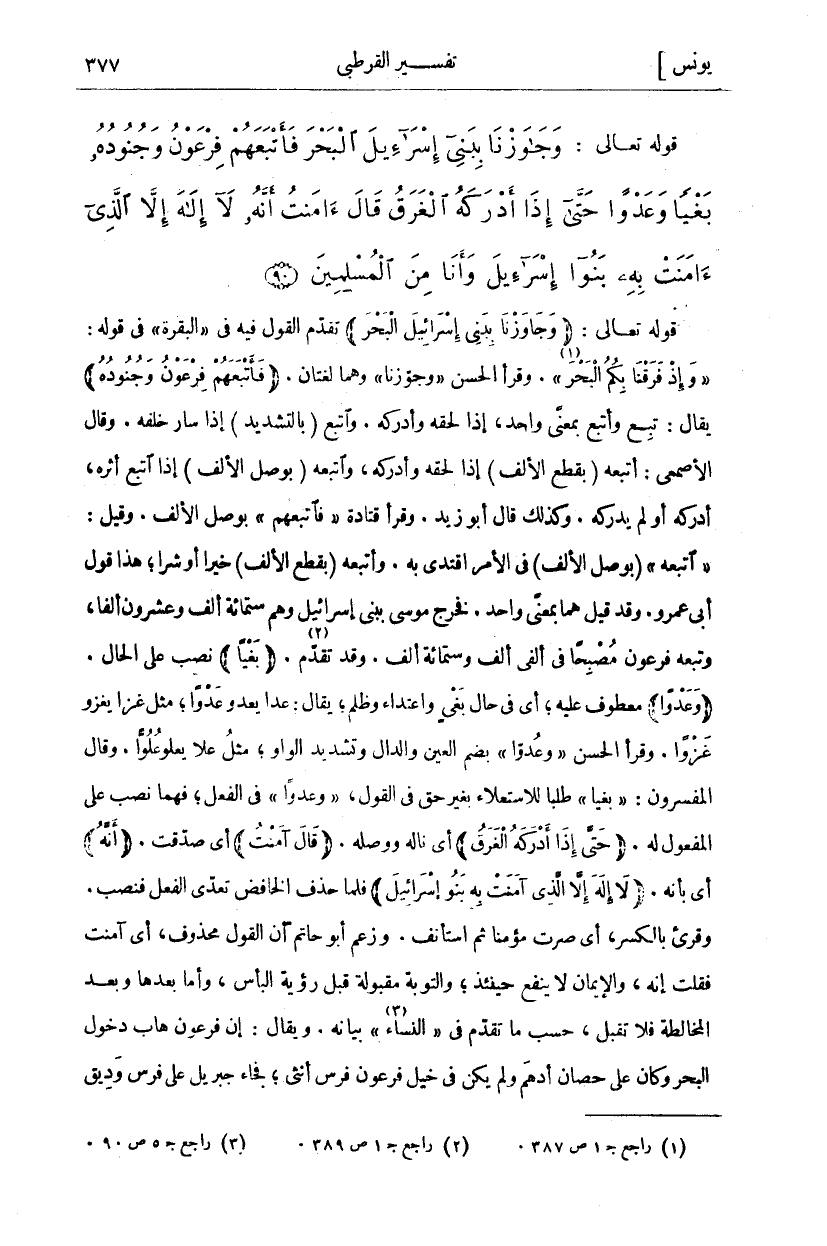 يونس] تفسير القرطبى ٣٧٧
قوله تعالى : وَجَٰوَزْنَا بِبَنِىٓ إِسْرَٰٓءِيلَ ٱلْبَحْرَ فَأَتْبَعَهُمْ فِرْعَوْنُ وَجُنُودُهُۥ
بَغْيًا وَعَدْوًا حَتَّىٰٓ إِذَآ أَدْرَكَهُ ٱلْغَرَقُ قَالَ ءَامَنتُ أَنَّهُۥ لَآ إِلَٰهَ إِلَّا ٱلَّذِىٓ
ءَامَنَتْ بِهِۦ بَنُوٓا إِسْرَٰٓءِيلَ وَأَنَا مِنَ ٱلْمُسْلِمِينَ ﴿٩٠﴾
قوله تعالى : ﴿وَجَاوَزْنَا بِبَنِى إِسْرَائِيلَ الْبَحْرَ﴾ تقدّم القول فيه فى «البقرة» فى قوله :
«وَإِذْ فَرَقْنَا بِكُمُ الْبَحْرَ»(١) . وقرأ الحسن «وجوّزنا» وهما لغتان . ﴿فَأَتْبَعَهُمْ فِرْعَوْنُ وَجُنُودُهُ﴾
يقال : تبِع وأتبع بمعنًى واحد، إذا لحقه وأدركه . وٱتبع (بالتشديد) إذا سار خلفه . وقال
الأصمعى : أتبعه (بقطع الألف) إذا لحقه وأدركه، وٱتبعه (بوصل الألف) إذا ٱتبع أثره،
أدركه أو لم يدركه . وكذلك قال أبو زيد . وقرأ قتادة «فٱتبعهم» بوصل الألف . وقيل :
«ٱتبعه» (بوصل الألف) فى الأمر اقتدى به . وأتبعه (بقطع الألف) خيرا أو شرا؛ هذا قول
أبى عمرو. وقد قيل هما بمعنًى واحد . فخرج موسى ببنى إسرائيل وهم ستمائة ألف وعشرون ألفا،
وتبعه فرعون مُصْبِحًا فى ألفى ألف وستمائة ألف . وقد تقدّم(٢) . ﴿بَغْيًا﴾ نصب على الحال .
﴿وَعَدْوًا﴾ معطوف عليه؛ أى فى حال بَغْى واعتداء وظلم؛ يقال: عدا يعدو عَدْوًا؛ مثل غزا يغزو
غَزْوًا . وقرأ الحسن «وعُدوّا» بضم العين والدال وتشديد الواو؛ مثلُ علا يعلو عُلُوًّا . وقال
المفسرون : «بغيا» طلبا للاستعلاء بغير حق فى القول، «وعدوًا» فى الفعل؛ فهما نصب على
المفعول له . ﴿حَتَّى إِذَا أَدْرَكَهُ الْغَرَقُ﴾ أى ناله ووصله . ﴿قَالَ آمَنْتُ﴾ أى صدّقت . ﴿أَنَّهُ﴾
أى بأنه . ﴿لَا إِلَهَ إِلَّا الَّذِى آمَنَتْ بِهِ بَنُو إِسْرَائِيلَ﴾ فلما حذف الخافض تعدّى الفعل فنصب .
وقرئ بالكسر، أى صرت مؤمنا ثم استأنف . وزعم أبو حاتم أن القول محذوف، أى آمنت
فقلت إنه ، والإيمان لا ينفع حينئذ؛ والتوبة مقبولة قبل رؤية البأس ، وأما بعدها وبعد
المخالطة فلا تقبل ، حسب ما تقدّم فى «النساء»(٣) بيانه . ويقال : إن فرعون هاب دخول
البحر وكان على حصان أدهَم ولم يكن فى خيل فرعون فرس أنثى؛ فجاء جبريل على فرس وَدِيق
(١) راجع جـ ١ ص ٣٨٧ . (٢) راجع جـ ١ ص ٣٨٩ . (٣) راجع جـ ٥ ص ٩٠ .